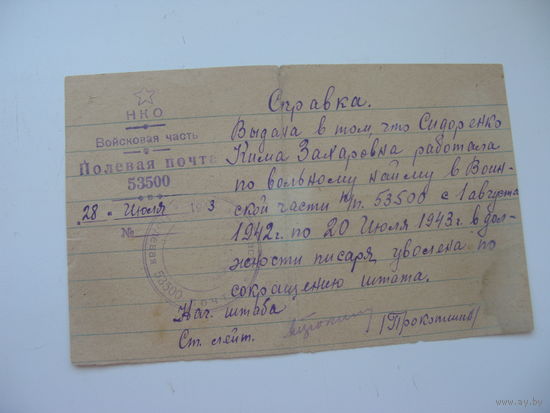 НКО
Войсковая часть
Полевая почта
53500
"28" Июля 1943
№
Справка.
Выдана в том, что Сидоренко
Кима Захаровна работала
по вольному найму в Воин-
ской части п/п. 53500 с 1 августа
1942 г. по 20 Июля 1943 г. в дол-
жности писаря, уволена по
сокращению штата.
Нач. штаба
Ст. лейт.
53500
www.ay.by